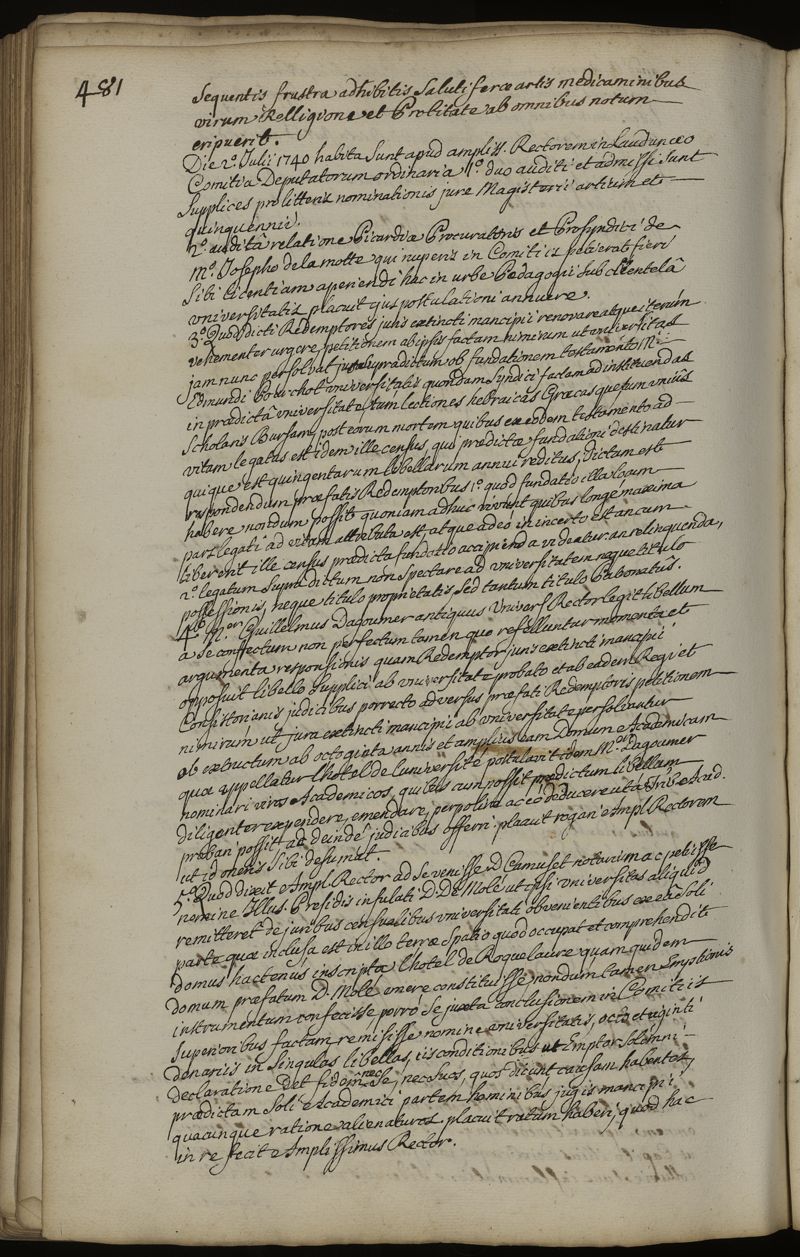 481
Sequentis frustra adhibitis Salutiferæ artis medicaminibus
virum Relligione et Probitate ab omnibus notum
eripuerit.
Die 2ª. Julii 1740 habita Sunt apud ampliss. Rectorem in Laudunæo
Comitia Deputatorum ordinaria 1º. duo auditi et admissi Sunt
Supplices pro litteris nominationis jure Magisterii artium et
quinquennii.
2º. auditâ relatione Picardiæ Procuratoris et Prosyndici de
Mº. Josepho de la motte qui nuperis in Comitiis petierat fieri
Sibi licentiam aperiendi hac in urbe Pedagogii Sub clientelâ
universitatis placuit ejus postulationi annuere.
3º. Quod dicti Redemptores juris extincti mancipii renovare atque iterum
vehementer urgere petitionem ab ipsis factam nimirum ut universitas
jam nunc persolvat jura Supradictum ob fundationem testamento Mi.
Edmundi Pourchot universitatis quondam Syndici factam ad instituendas
in prædictâ universitate tum lectiones hebraicas Græcasque tum unius
Scholaris Bursam, post eorum mortem quibus ex eodem testamento ad
vitam legatus est idem ille census, qui prædictæ fundationi destinatur
quique est quingentarum libellarum annui reditus, dictum est
respondendum præfatis Redemptoribus 1º. quod fundatio illa locum
habere nondum possit quoniam adhuc vivunt quibus longe maxima
pars legati ad vitam attributa est, atque adeo in incerto est an cum
liber erit ille census prædicta fundatio accipienda videatur an relinquenda,
2º. legatum Supradictum non Spectare ad universitatem neque titulo
possessionis, neque titulo proprietatis Sed tantum titulo Patronatus.
4º. Mer. Guillelmus Dagoumer antiquus Univers. Rector legit libellum
a Se confectum non perfectum tamen quo refelluntur momenta et
argumenta responsionis quam Redemptor juris extincti mancipii
opposuit libello Supplici ab universitate probato et ab eadem Regi et
Consistorianis judicibus porrecto adversus præfati Redemptoris petitionem
nimirum ut jura extincti mancipii ab universitate persolvantur
ob extructum ab octoginta annis et amplius eam Domum Academicam
quæ appellatur l'hotel de l'université postulavit idem Mer. Dagoumer
nominari viros Academicos, quibuscum possit prædictum libellum
diligenter expendere, emendare, perpolire ac eò deducere ut à Tribu Acad.
probari possit ac deinde judicibus offerri. placuit rogari Ampl. Rectorem
ut idoneos Sibi desumat.
5º. Quod dixit Ampl. Rector ad Se venisse D. Camuset notarium ac petiisse
nomine Illus. Præsidis infulati D. De Molé ut ipsi universitas aliquid
remitteret de juribus censualibus universitati obvenientibus ex eâ Soli
parte quæ inclusa est in illo terræ Spatio quod occupat et comprehendit
domus hactenus inscripta l'hotel de Roquelaure quam quidem
domum præfatum D. Molé emere constituisse, nondum tamen Emptionis
instrumentum confecisse porro Se juxta conclusionem in Comitiis
Superioribus factam remisisse nomine universitatis, octo et viginti
denariis in Singulas libellas, iis conditionibus ut Emptor Solemni
declaratione det fidem nec Se, nec Suos, quos dicunt causam habentes,
prædictam Soli Academici partem hominibus jugis mancipii
quacunque ratione alienaturos. placuit ratum haberi, quod hac
in re fecit Amplissimus Rector.